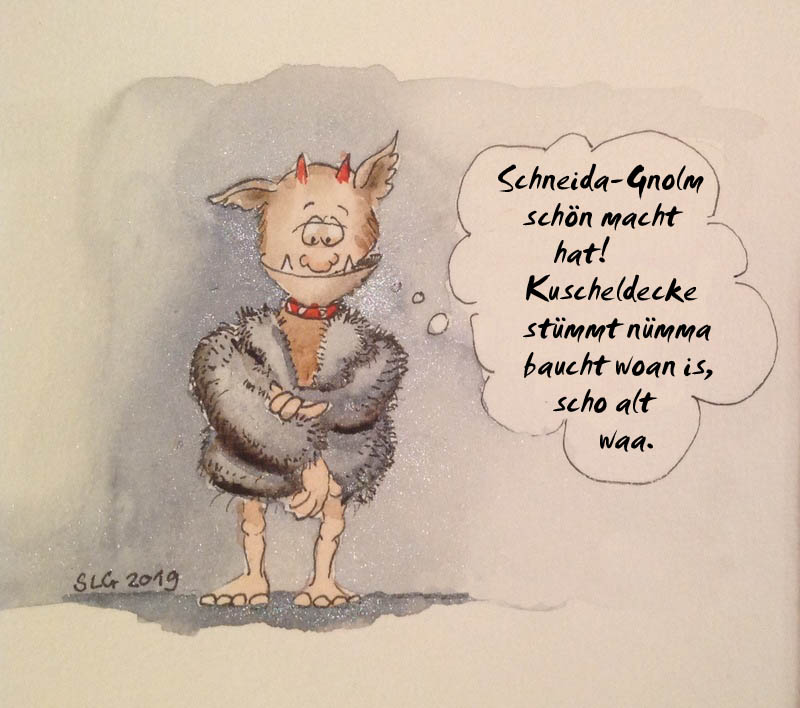 Schneida-Gnolm
schön macht
hat!
Kuscheldecke
stümmt nümma
baucht woan is,
scho alt
waa.
SLG 2019